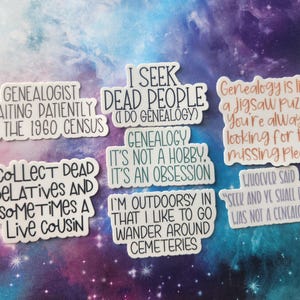 GENEALOGIST
AITING PATIENTLY
THE 1960 CENSUS
I SEEK
DEAD PEOPLE
(I DO GENEALOGY)
Genealogy is li
a jigsaw pu
you're alwa
looking for
missing pie
GENEALOGY
IT'S NOT A HOBBY,
IT'S AN OBSESSION
COLLECT DEAD
RELATIVES AND
SOMETIMES A
LIVE COUSIN
I'M OUTDOORSY IN
THAT I LIKE TO GO
WANDER AROUND
CEMETERIES
WHOEVER SAID
"SEEK AND YE SHALL
WAS NOT A GENEAL